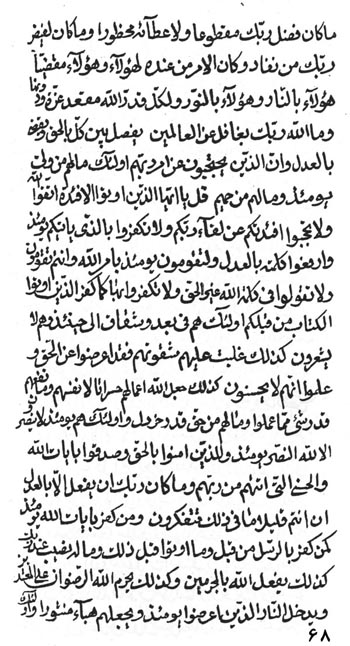 ما كان فضل ربك مقطوعا ولا عطائه محظورا وما كان لغيض
ربك من نفاد وكان الامر من عنده لهؤلاء وهؤلاء مقضيا
هؤلاء بالنار وهؤلاء بالنور ولكل قدر الله مقعد عزة
وما الله ربك بغافل عن العالمين يفصل بين كل بالحق
بالعدل وان الذين يحتجبون عن امر ربهم اولئك مالهم من ولى
يومئذ ومالهم من حميم قل يا ايها الذين اوتوا الافئدة اتقوا الله
ولا تحجبوا افئدتكم عن لقاء ربكم ولا تكفروا بالذى ياتيكم يومئذ
وارفعوا كلمته بالعدل ولتقومون يومئذ بامر الله وانتم
ولا تقولوا فى كلمة الله غير الحق ولا تكفروا بها كما كفر الذين اوتوا
الكتاب من قبلكم اولئك هم فى بعد وشقاق الى حينئذ وهم لا
يشعرون كذلك غلبت عليهم شقوتهم فقد اعرضوا عن الحق و
علموا انهم لا يحسنون كذلك جعل الله اعمالهم حسرانا لانفسهم وما
قدر شئ مما عملوا ومالهم من حق قدر خردل واولئك هم يومئذ لا
الا لله النصر يومئذ وللذين امنوا بالحق وصدقوا بايات الله
والحجج التى اتتهم من ربهم وما كان ربك ان يفعل الا بالعدل
ان انتم قليلا ما فى ذلك تتفكرون ومن كفر بايات الله يومئذ
كمن كفر بالرسل من قبل وما اوتوا قبل ذلك وما
كذلك يفعل الله بالمجرمين وكذلك يحرم الله الرضوان على
ويدخل النار الذين اعرضوا يومئذ ويجعلهم هباء منثورا
٦٨